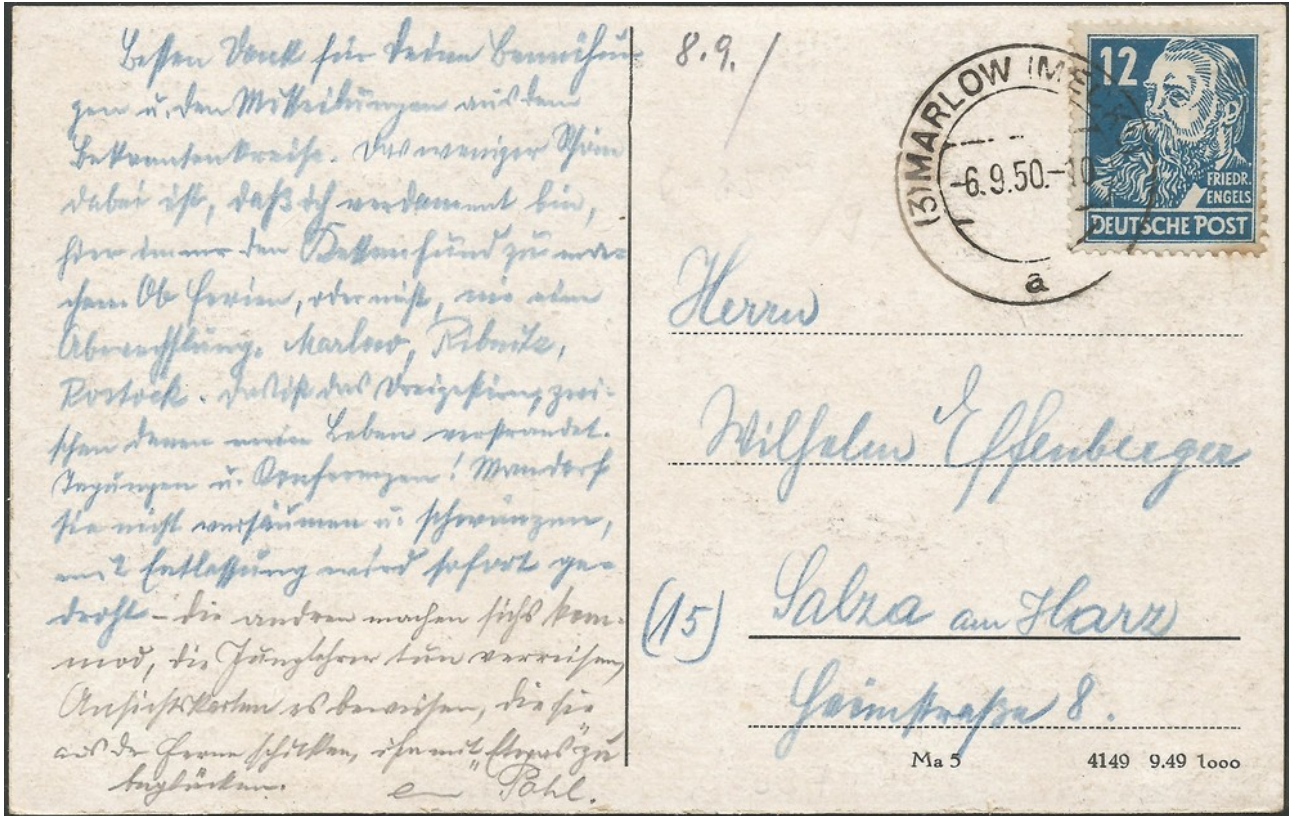 Besten Dank für Deine Bemühun-
gen u. den Mitteilungen aus dem
Bekanntenkreise. Das weniger Schöne
dabei ist, daß ich verdammt bin,
hier immer den Kettenhund zu ma-
chen. Ob Ferien, oder nicht, nie eine
Abwechslung. Marlow, Ribnitz,
Rostock. Das ist das Dreigestirn, zwi-
schen denen mein Leben verstrandet.
Tagungen u. Konferenzen! Man darf
sie nicht versäumen u. schwänzen,
mit Entlassung wird sofort ge-
droht – die andren machen sichs kom-
mod, die Junglehrer tun verreisen,
Ansichtskarten es beweisen, die sie
aus der Ferne schicken, ihn mit "Etwas" zu
beglücken. Pohl.
8.9. /
(3) MARLOW (MECKL
-6.9.50.-10
a
12
FRIEDR.
ENGELS
DEUTSCHE POST
Herrn
Wilhelm Effenberger
(15) Salza am Harz
Heimstraße 8.
Ma 5 4149 9.49 1000